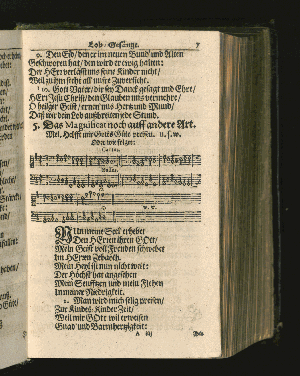 Lob-Gesänge. 7
9. Den Eyd/ den er im neuen Bund und Alten
Geschworen hat/ den wird er ewig halten:
Der HErr verläst uns seine Kinder nicht/
Weil zu ihm steht all unsre Zuversicht.
10. Gott Vater/ dir sey Danck gesagt und Ehre/
HErr JEsu Christ/ den Glauben uns vermehre/
O heilger Geist/ ernew uns Hertz und Mund/
Daß wir dein Lob außbreiten jede Stund.
5. Das Magnificat noch auff andere Art.
Mel. Helfft mir Gotts Güte preisen. u.s.w.
Oder wie folget:
Cantus.
Bassus.
NUn meine Seel erhebet
Den HErren ihren GOtt/
Mein Geist voll Freuden schwebet
Im HErren Zebaoth.
Mein Heyl ist nun nicht weit:
Der Höchst hat angesehen
Mein Seufftzen und mein Flehen
In meiner Niedrigkeit.
2. Man wird mich selig preisen/
Zur Kindes-Kinder Zeit/
Weil mir GOtt wil erweisen
Gnad und Barmhertzigkeit:
A iiij